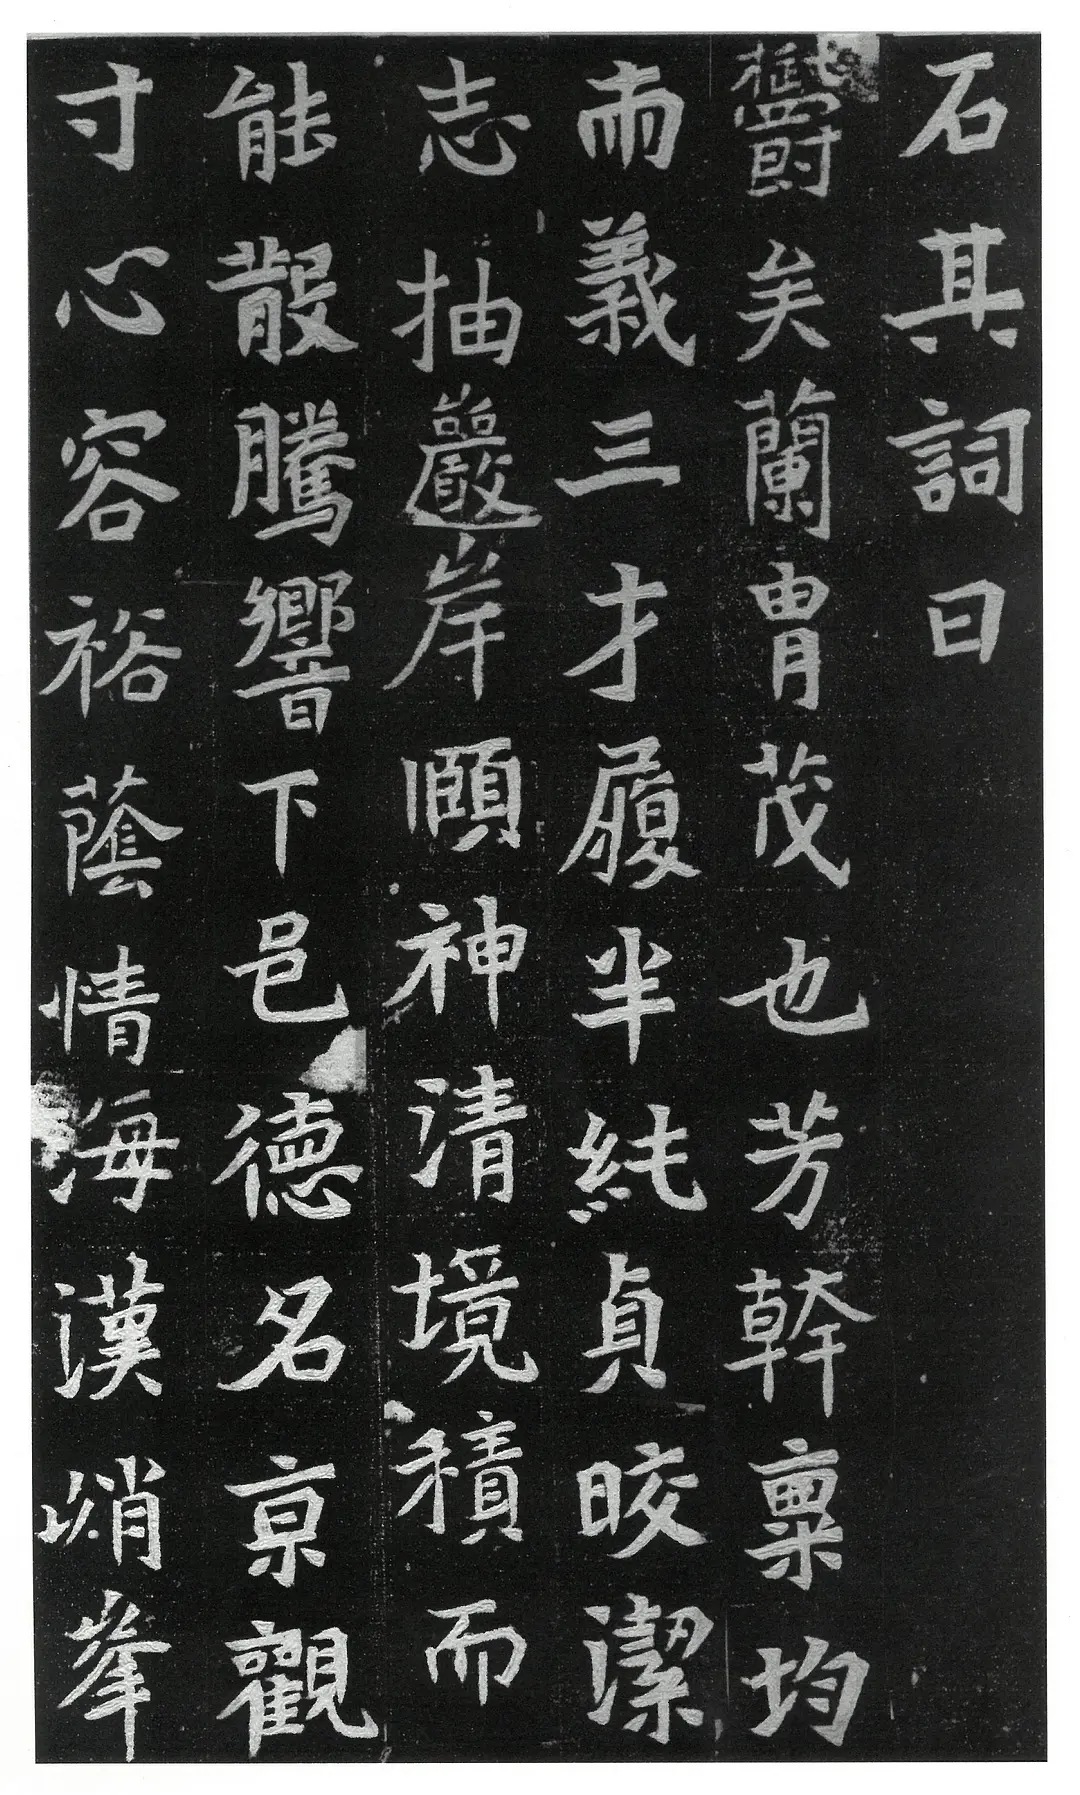 石其詞曰
鬱矣蘭胄茂也芳幹稟均
兩義三才履半純貞晈潔
志抽巖岸頤神清境積而
能散騰響下邑德名京觀
寸心容裕蔭情海漢峭峯